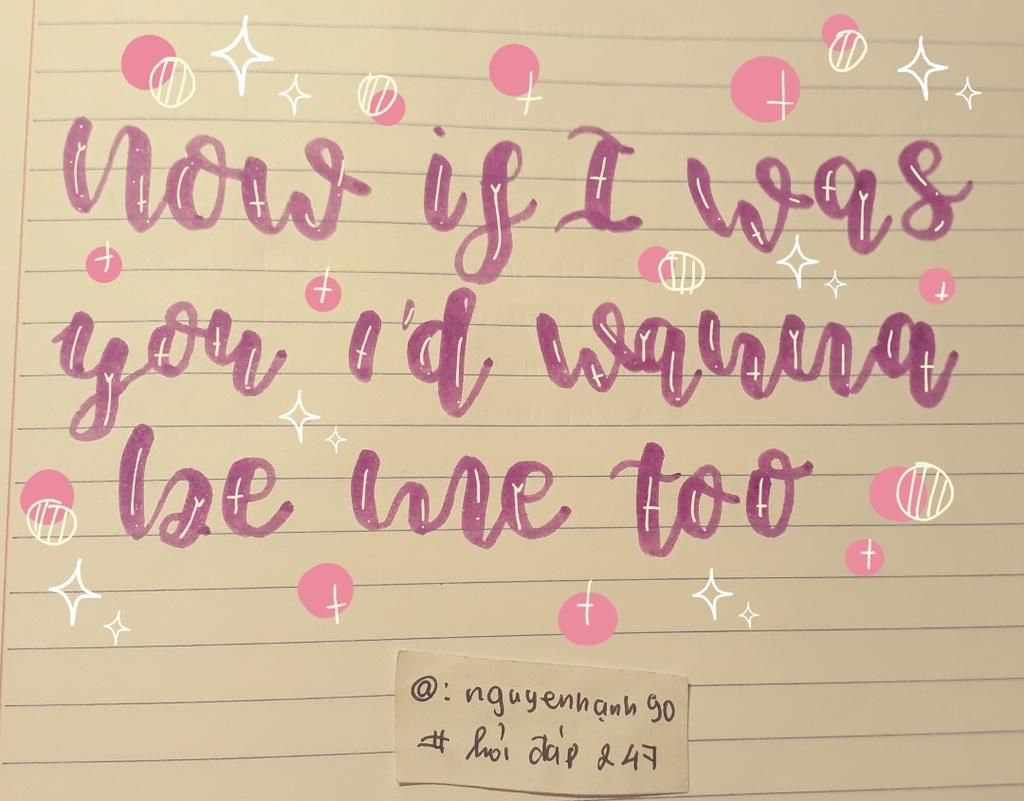 Now if I was
you I'd wanna
be me too
@: nguyenhạnh90
# hỏi đáp 247